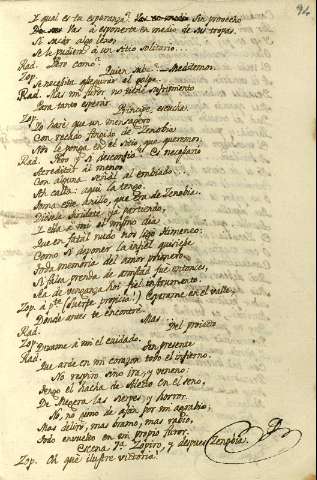 94
I qual es tu esperanza? Sin provecho
Vas á exponerte en medio de sus tropas.
Si sacar algo bien
Se le pudiera á un sitio solitario...
Rad. Pero como?
Zop. Quien sabe? Meditemos.
Se necesita asegurar el golpe.
Rad. Mas mi furor no tiene sufrimiento
Para tanto esperar.
Zop. Principe, escucha.
Yo haré que un mensagero
Con recado fingido de Zenobia
Nos le ponga en el sitio, que queremos.
Rad. Pero y si desconfia? Es necesario
Acreditar al menos
Con alguna señal al embiado...
Ah calla: aqui la tengo.
Toma este Anillo, que era de Zenobia.
Diósele Tiridate, ya partiendo,
I ella á mi el mismo dia
Que en fatal nudo nos ligó Himeneo:
Como si deponer la infiel quisiese
Toda memoria del amor primero.
Si falsa prenda de amistad fue entonces,
Ha de venganza hoi fiel instrumento.
Zop. á pte (Suerte propicia!) Esperame en el valle,
Donde antes te encontré.
Rad. Mas...
Zop. Del proyecto
Dexame á mi el cuidado.
Rad. Ten presente
Que arde en mi corazon todo el infierno.
No respiro sino ira, y veneno:
Tengo el hacha de Alecto en el seno,
De Megera las sierpes, y horror.
No, no gimo de afan por mi agravio;
Mas deliro, mas bramo, mas rabio,
Todo envuelto en mi propio furor.
Escena 7ª. Zopiro, y despues Zenobia.
Zop. Oh que ilustre victoria!